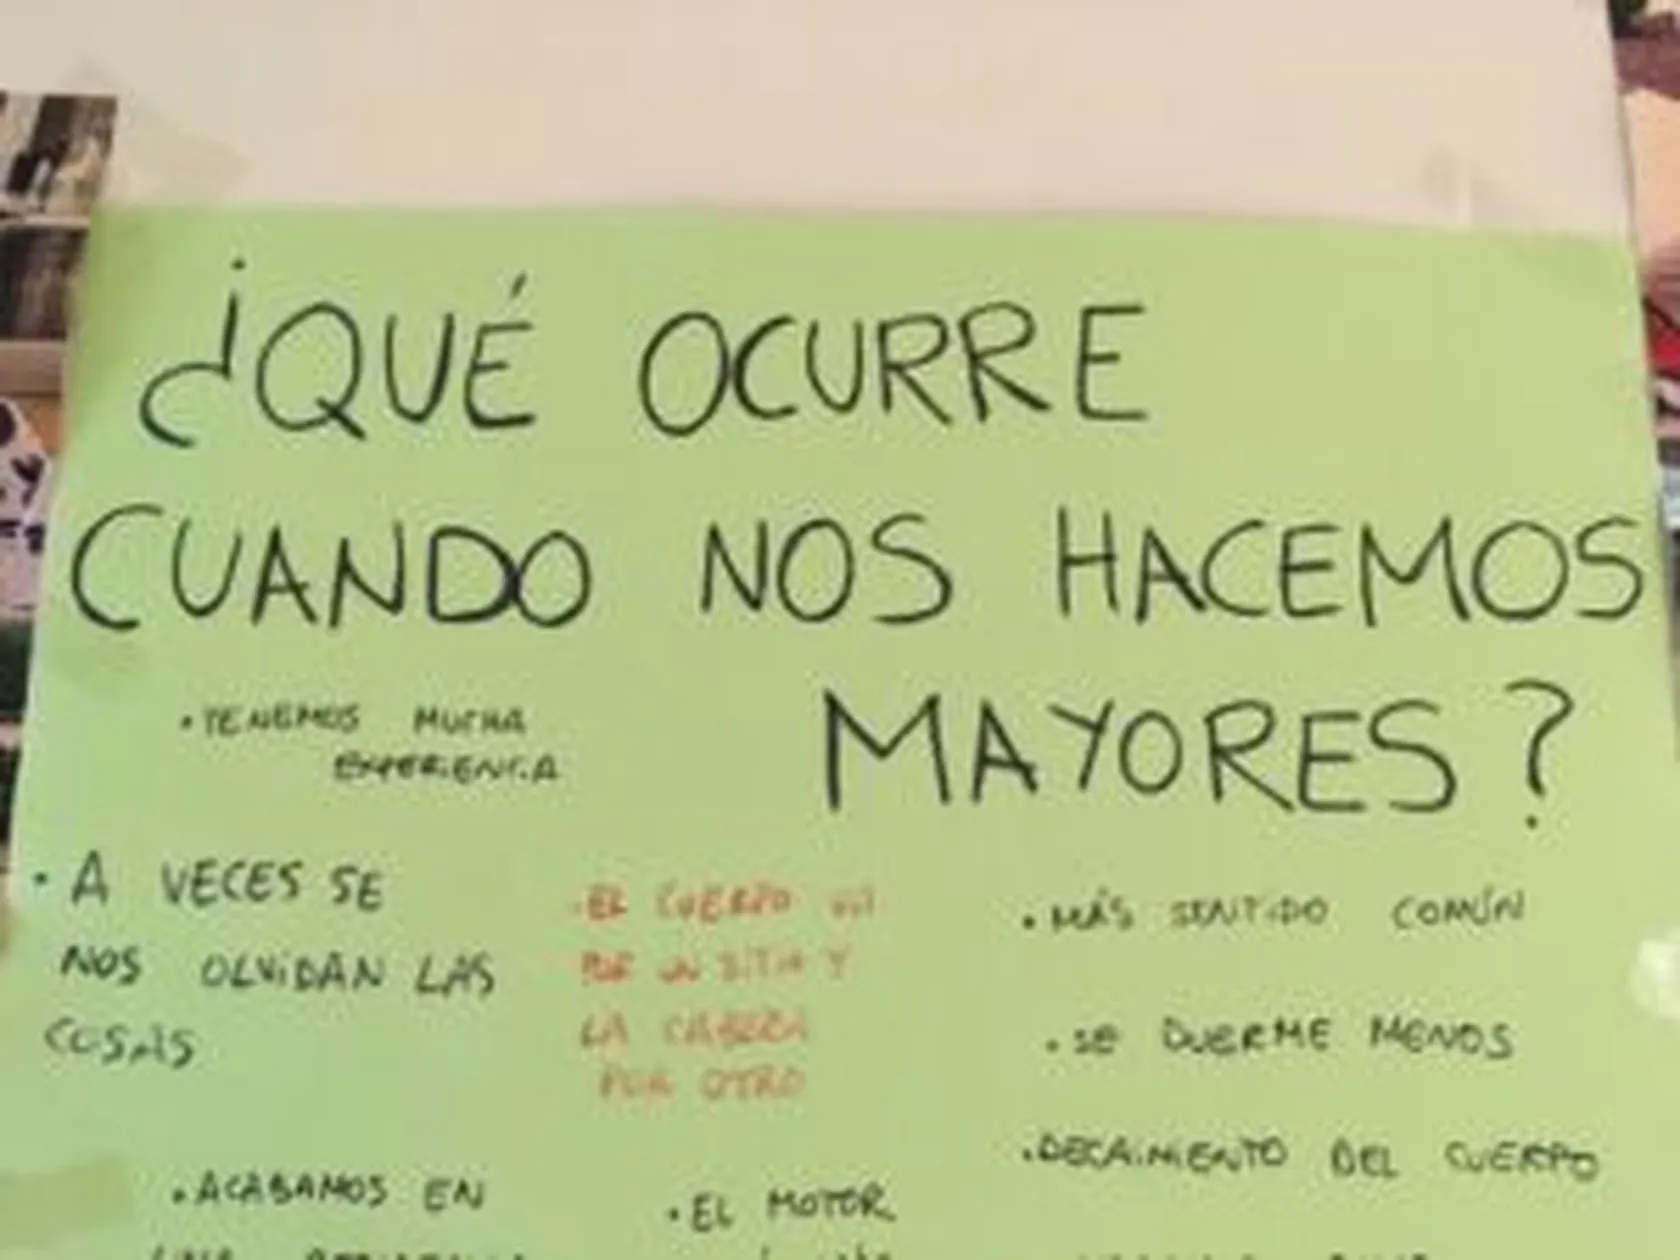 ¿QUÉ OCURRE
CUANDO NOS HACEMOS
MAYORES?
· TENEMOS MUCHA
EXPERIENCIA
· A VECES SE
NOS OLVIDAN LAS
COSAS
· EL CUERPO VA
POR UN SITIO Y
LA CABEZA
POR OTRO
· MÁS SENTIDO COMÚN
· SE DUERME MENOS
· DECAIMIENTO DEL CUERPO
· ACABAMOS EN
· EL MOTOR